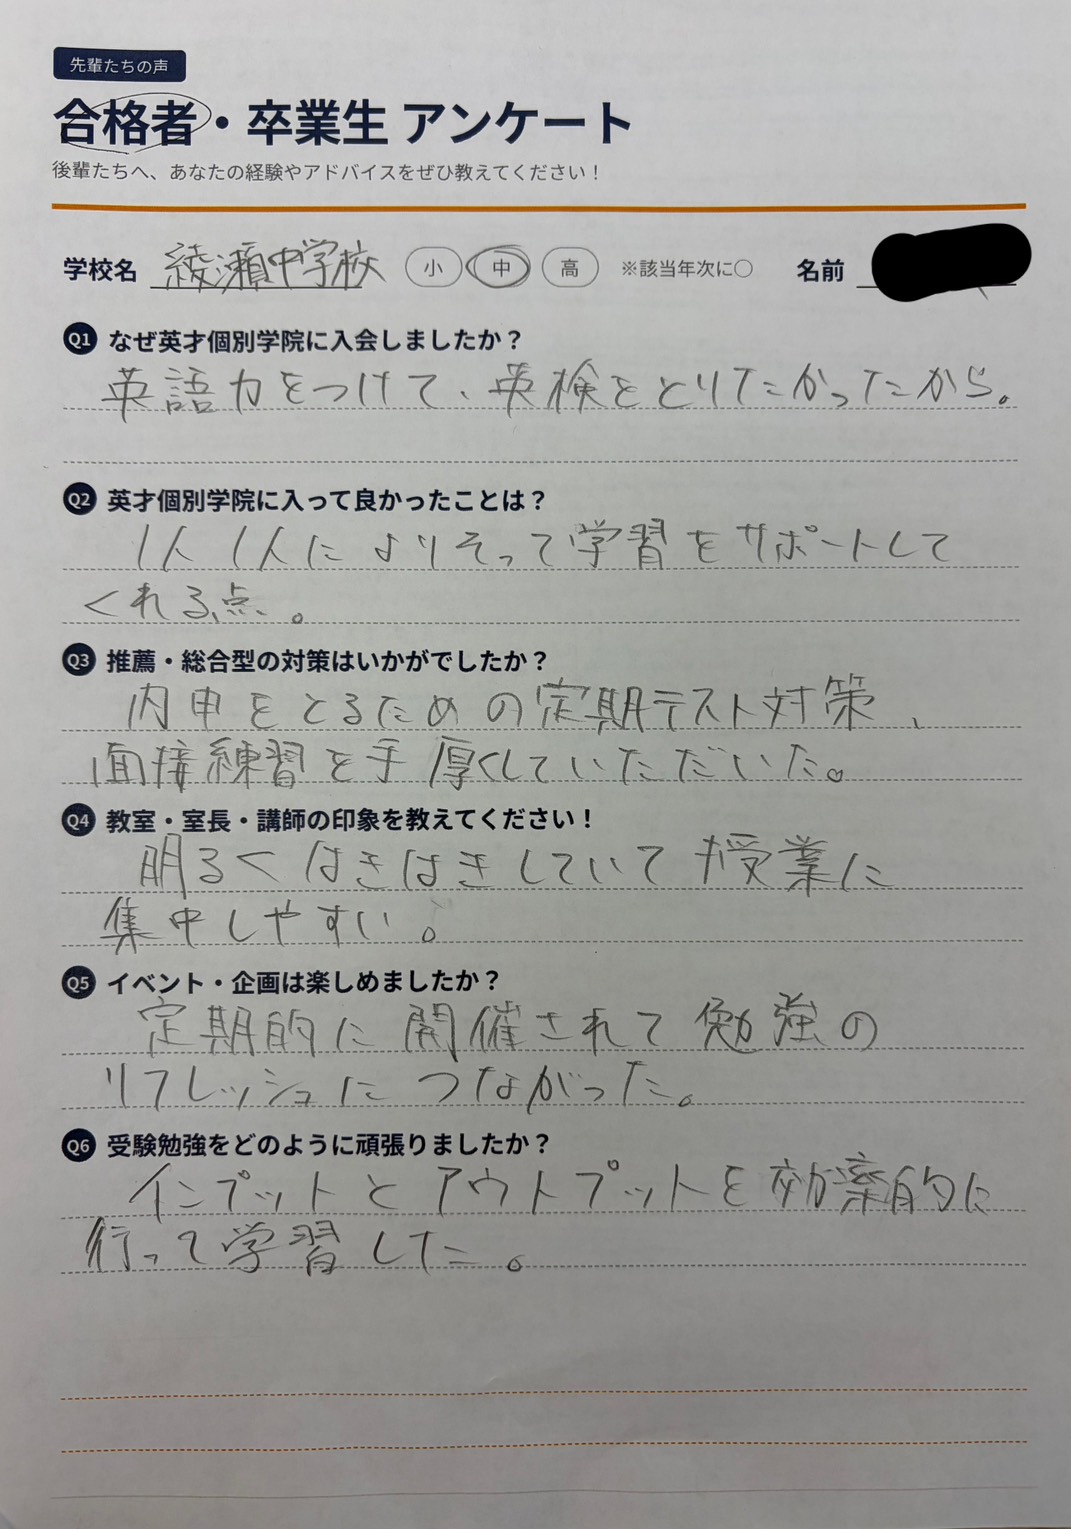 先輩たちの声
合格者・卒業生 アンケート
後輩たちへ、あなたの経験やアドバイスをぜひ教えてください！
学校名 綾瀬中学校 小 中 高 ※該当年次に〇 名前
Q1 なぜ英才個別学院に入会しましたか？
英語力をつけて、英検をとりたかったから。
Q2 英才個別学院に入って良かったことは？
1人1人によりそって学習をサポートして
くれる点。
Q3 推薦・総合型の対策はいかがでしたか？
内申をとるための定期テスト対策、
面接練習を手厚くしていただいた。
Q4 教室・室長・講師の印象を教えてください！
明るくはきはきしていて授業に
集中しやすい。
Q5 イベント・企画は楽しめましたか？
定期的に開催されて勉強の
リフレッシュにつながった。
Q6 受験勉強をどのように頑張りましたか？
インプットとアウトプットを効率的に
行って学習した。